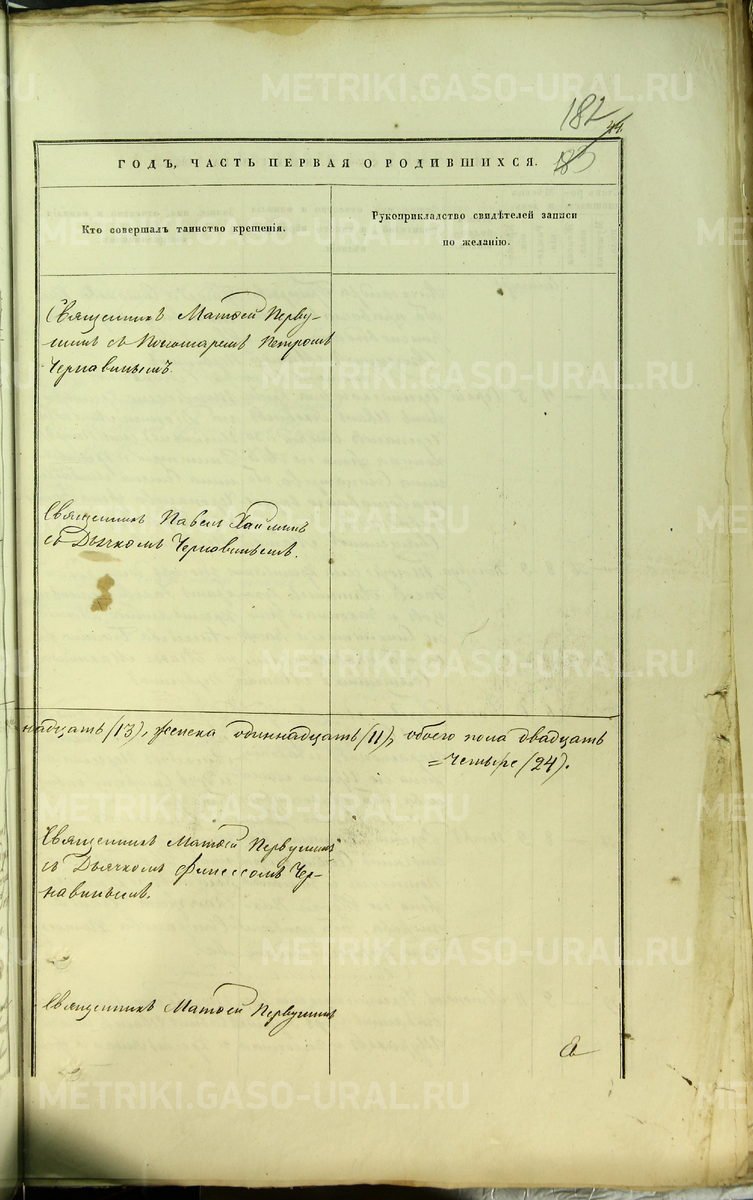 METRIKI.GASO-URAL.RU
182
44
183
ГОДЪ, ЧАСТЬ ПЕРВАЯ О РОДИВШИХСЯ.
Кто совершалъ таинство крещенія.
Рукоприкладство свидѣтелей записи
по желанію.
Священникъ Матѳей Перву-
шинъ съ Пономаремъ Петромъ
Чернавинымъ
Священникъ Павелъ Хаймин
съ Дьячкомъ Чернавинымъ.
надцать (13), женска одиннадцать (11), обоего пола двадцать
= четыре (24).
Священникъ Матѳей Первушинъ
съ Дьячкомъ Финессомъ Чер-
навинымъ.
Священникъ Матѳей Первушинъ